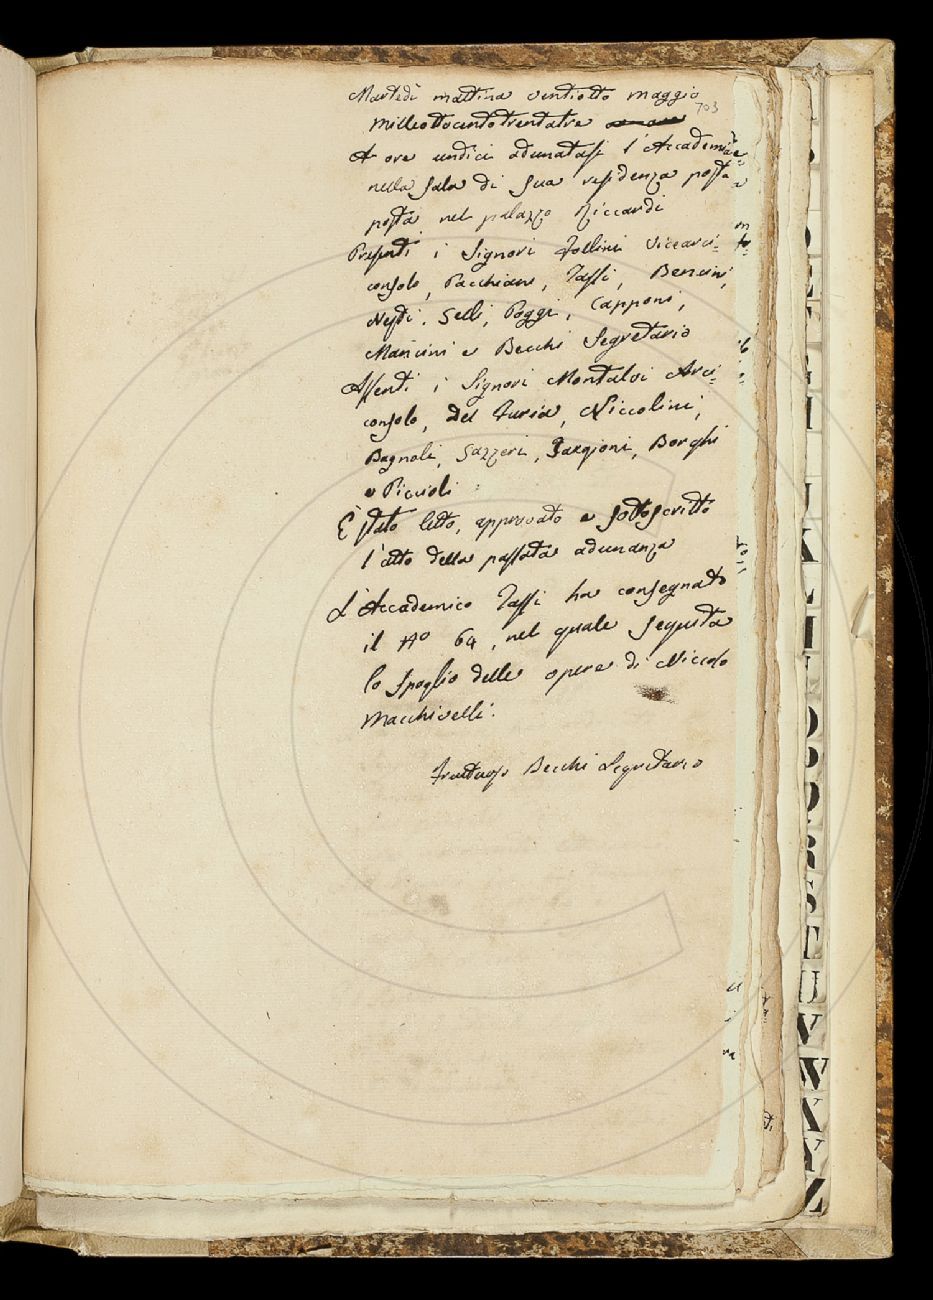 Martedì mattina ventiotto maggio
703
milleottocentotrentatre
A ore undici adunatasi l'Accademia
nella sala di sua residenza posta
posta nel palazzo Riccardi
Presenti i Signori Follini Vicearci=
consolo, Pacchiani, Tassi, Bencini,
Nesti, Selli, Poggi, Capponi,
Mancini e Becchi Segretario
Assenti i Signori Montalvi Arci=
consolo, Del Furia, Niccolini,
Bagnoli, Gazzeri, Targioni, Borghi
e Piccioli
È stato letto, approvato e sottoscritto
l'atto della passata adunanza
L'Accademico Tassi ha consegnato
il N° 64, nel quale seguita
lo spoglio delle opere di Niccolo
Macchivelli.
Fruttuoso Becchi Segretario
S
T
U
V
W
X
Y
Z